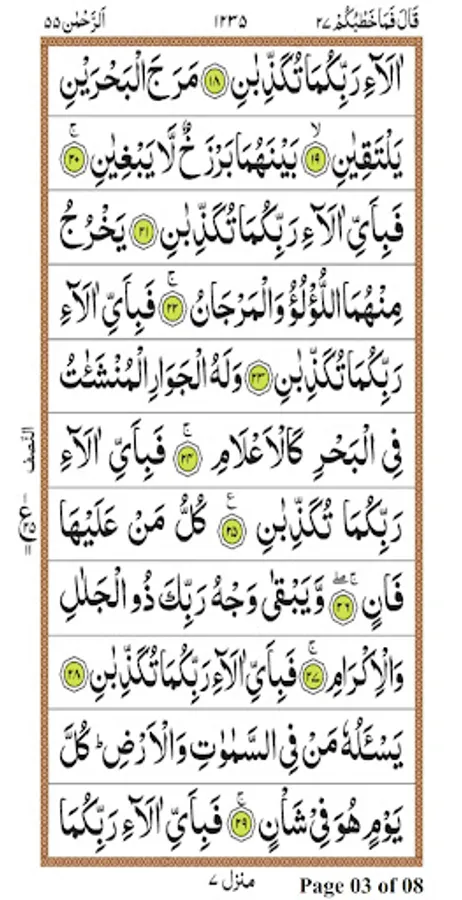 قَالَ فَمَا خَطْبُكُمْ ٢٧ ١٢٣٥ اَلرَّحْمٰن ٥٥
اٰلَآءِ رَبِّكُمَا تُكَذِّبٰنِ ﴿١٨﴾ مَرَجَ الْبَحْرَيْنِ
يَلْتَقِيٰنِ ۙ﴿١٩﴾ بَيْنَهُمَا بَرْزَخٌ لَّا يَبْغِيٰنِ ۚ﴿٢٠﴾
فَبِاَيِّ اٰلَآءِ رَبِّكُمَا تُكَذِّبٰنِ ﴿٢١﴾ يَخْرُجُ
مِنْهُمَا اللُّؤْلُؤُ وَالْمَرْجَانُ ۚ﴿٢٢﴾ فَبِاَيِّ اٰلَآءِ
رَبِّكُمَا تُكَذِّبٰنِ ﴿٢٣﴾ وَلَهُ الْجَوَارِ الْمُنْشَئٰتُ
فِى الْبَحْرِ كَالْاَعْلَامِ ۚ﴿٢٤﴾ فَبِاَيِّ اٰلَآءِ
النصف
رَبِّكُمَا تُكَذِّبٰنِ ﴿٢٥﴾ع كُلُّ مَنْ عَلَيْهَا
فَانٍ ۚۖ﴿٢٦﴾ وَّيَبْقٰى وَجْهُ رَبِّكَ ذُو الْجَلٰلِ
وَالْاِكْرَامِ ۚ﴿٢٧﴾ فَبِاَيِّ اٰلَآءِ رَبِّكُمَا تُكَذِّبٰنِ ﴿٢٨﴾
يَسْـَٔلُهٗ مَنْ فِى السَّمٰوٰتِ وَالْاَرْضِ ؕ كُلَّ
يَوْمٍ هُوَ فِيْ شَاْنٍ ۚ﴿٢٩﴾ فَبِاَيِّ اٰلَآءِ رَبِّكُمَا
منزل ٧ Page 03 of 08